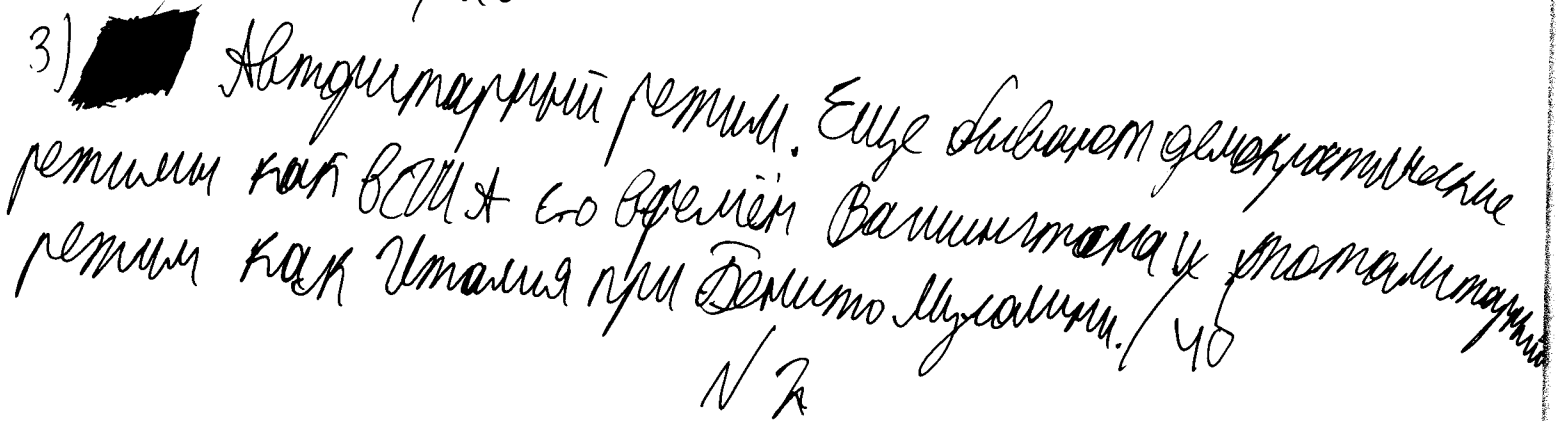 3) Авторитарный режим. Еще бывают демократические
режимы как в США со времён Вашингтона и тоталитарный
режим как Италия при Бенито Мусолини. / 4б
N 7